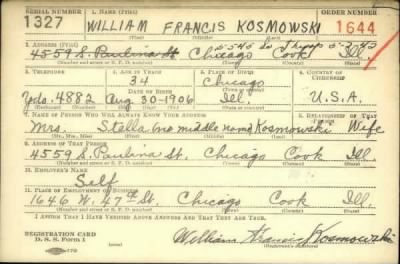 SERIAL NUMBER 1. NAME (Print) ORDER NUMBER
1327 WILLIAM FRANCIS KOSMOWSKI 1644
(First) (Middle) (Last)
2. ADDRESS (Print)
4559 S. Paulina St Chicago Cook Ill.
(Number and street or R. F. D. number) (Town) (County) (State)
3. TELEPHONE 4. AGE IN YEARS 5. PLACE OF BIRTH 6. COUNTRY OF CITIZENSHIP
34 Chicago
Yds. 4882 DATE OF BIRTH (Town or county)
Aug 30-1906 Ill. U.S.A.
(Exchange) (Number) (Mo.) (Day) (Yr.) (State or country)
7. NAME OF PERSON WHO WILL ALWAYS KNOW YOUR ADDRESS 8. RELATIONSHIP OF THAT PERSON
Mrs. Stella (no middle name) Kosmowski Wife
(Mr., Mrs., Miss) (First) (Middle) (Last)
9. ADDRESS OF THAT PERSON
4559 S. Paulina St. Chicago Cook Ill.
(Number and street or R. F. D. number) (Town) (County) (State)
10. EMPLOYER'S NAME
Self
11. PLACE OF EMPLOYMENT OR BUSINESS
1646 W. 47th St. Chicago Cook Ill.
(Number and street or R. F. D. number) (Town) (County) (State)
I AFFIRM THAT I HAVE VERIFIED ABOVE ANSWERS AND THAT THEY ARE TRUE.
REGISTRATION CARD
D. S. S. Form 1 William Francis Kosmowski
(Registrant's signature)